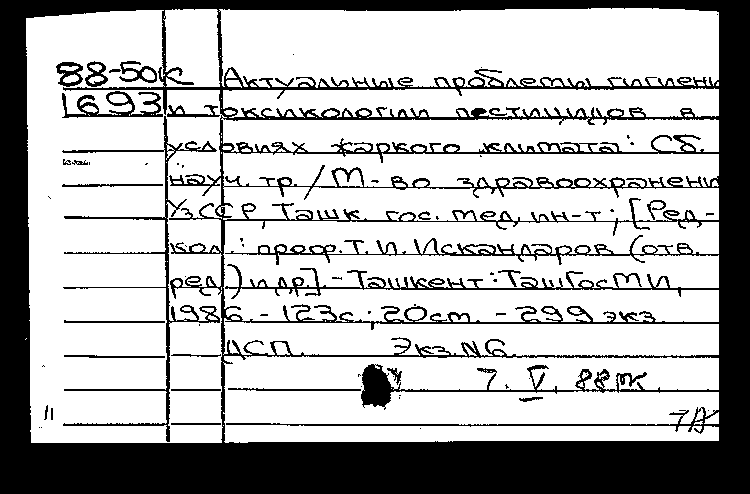 88-50К Актуальные проблемы гигиены
1693 и токсикологии пестицидов в
условиях жаркого климата: Сб.
науч. тр. / М-во здравоохранени
УзССР, Ташк. гос. мед. ин-т; [Ред-
кол.: проф. Т. И. Искандаров (отв.
ред.) и др.]. - Ташкент: ТашГосМИ,
1986. - 123с.; 20см. - 299 экз.
ДСП. Экз. N6.
7. V. 88
11